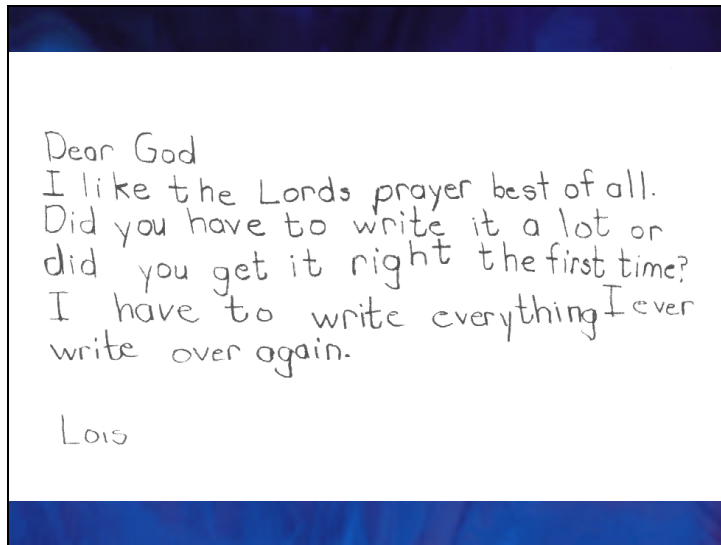 Dear God
I like the Lords prayer best of all.
Did you have to write it a lot or
did you get it right the first time?
I have to write everything I ever
write over again.
Lois